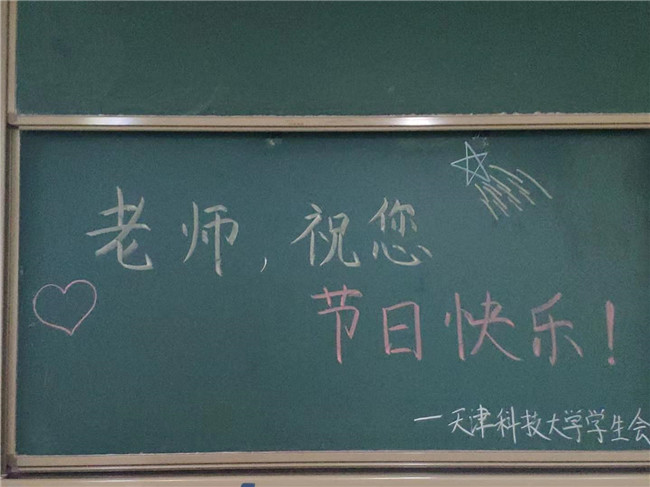 老师,祝您
节日快乐!
—天津科技大学学生会